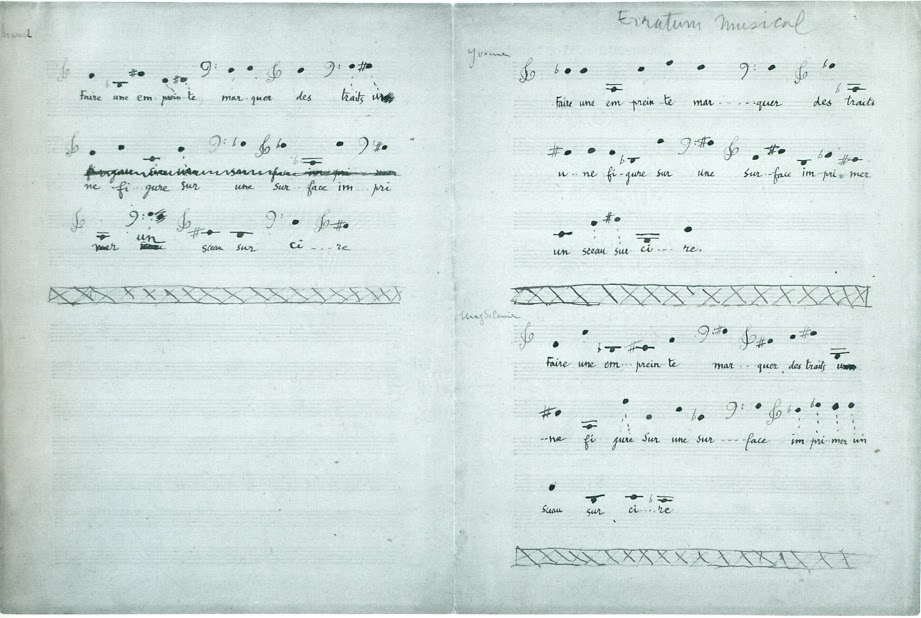 Erratum Musical
Faire une em prein te mar quer des traits
ne fi gure sur une sur face im pri
mer un sceau sur ci ... re
Yvonne
Faire une em prein te mar ---- quer des traits
u -- ne fi-gure sur une sur-face im pri - mer
un sceau sur ci ... re.
Magdeleine
Faire une em -- prein te mar --- quer des traits
-- ne fi gure sur une sur ---- face im pri mer un
sceau sur ci ... re